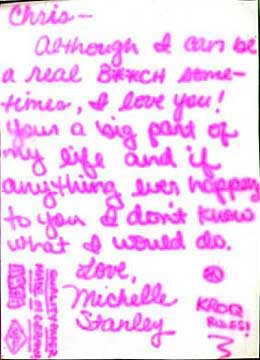 Chris-
Although I can be
a real B**CH some-
times, I love you!
Your a big part of
my life and if
anything ever happen
to you I don't know
what I would do.
Love,
Michelle
Stanley
KROQ
RULES!
QUALITY PAPER
MADE IN GERMANY